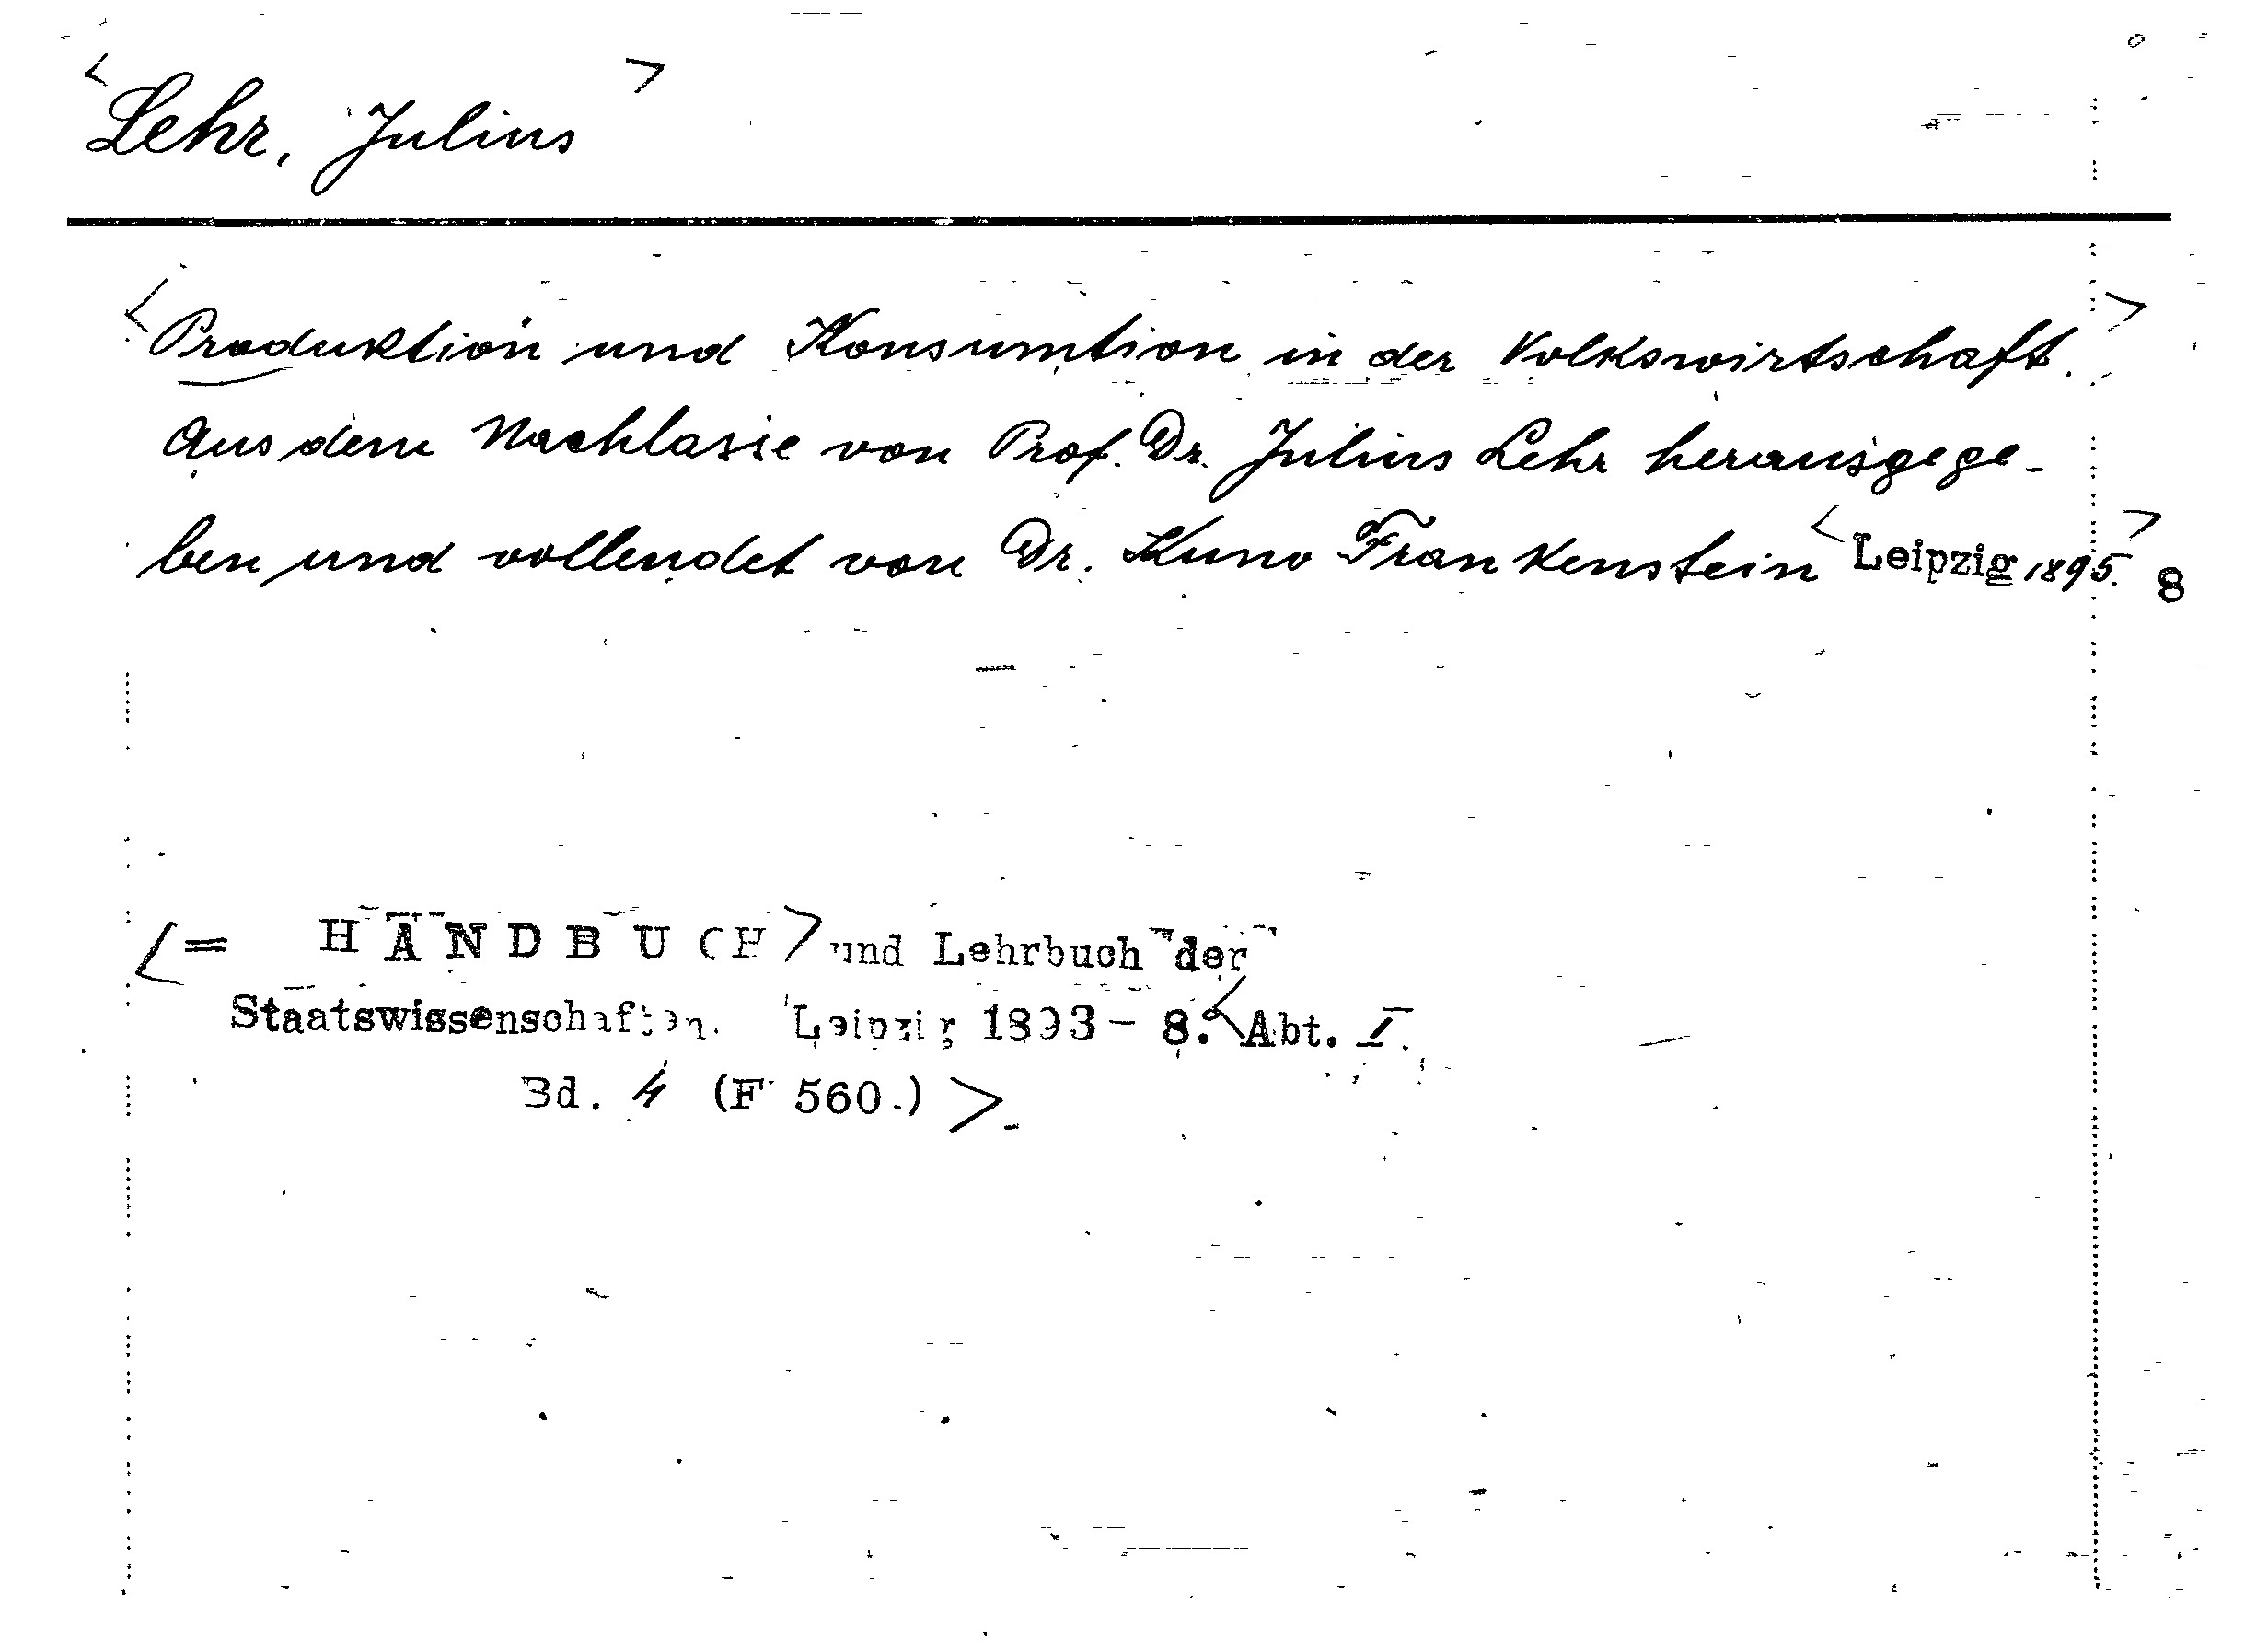 <Lehr, Julius>
<Produktion und Konsumtion in der Volkswirtschaft.>
Aus dem Nachlasse von Prof. Dr. Julius Lehr herausgege-
ben und vollendet von Dr. Kuno Frankenstein <Leipzig 1895.> 8
<= HANDBUCH> und Lehrbuch der
Staatswissenschaften. Leipzig 1893- 8. <Abt. I.
Bd. 4 (F 560.)>